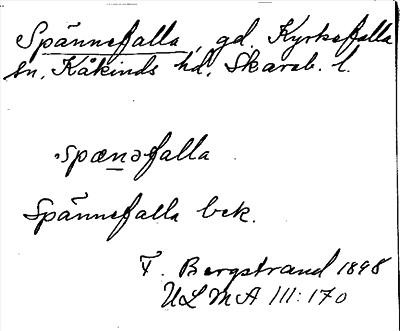 Spännefalla, gd. Kyrkefalla
sn, Kåkinds hd. Skarab. l.
spænəfalla
Spännefalla bek.
F. Bergstrand 1898
ULMA III:170